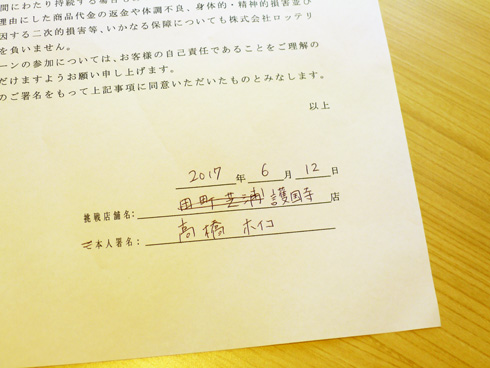 間にわたり持続する場合も
理由にした商品代金の返金や体調不良、身体的・精神的損害並び
因する二次的損害等、いかなる保障についても株式会社ロッテリ
を負いません。
ーンの参加については、お客様の自己責任であることをご理解の
だけますようお願い申し上げます。
のご署名をもって上記事項に同意いただいたものとみなします。
以上
2017年6月12日
挑戦店舗名：田町芝浦護国寺店
本人署名：高橋 ホイコ